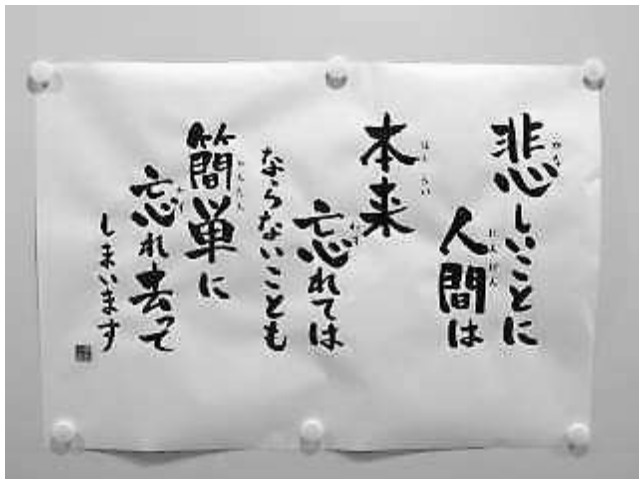 悲しいことに
人間は
本来
忘れては
ならないことも
簡単に
忘れ去って
しまいます